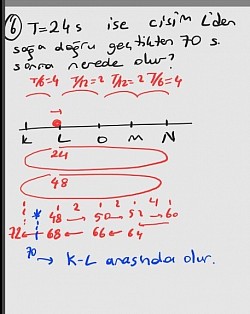 6) T=24 s ise cisim L'den
sağa doğru geçtikten 70 s.
sonra nerede olur?
T/6=4 T/12=2 T/12=2 T/6=4
K L O M N
24
48
48 2 50 2 52 4 60
72 68 66 64
70 → K-L arasında olur.